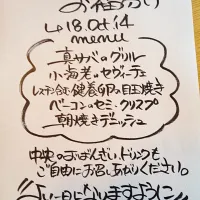 18.Oct 14
menu
真サバのグリル
小海老のセヴィーチェ
健養卵の目玉焼き
ベーコンのセミ・クリスプ
朝焼きデニッシュ
中央のおばんざい、ドリンクも
ご自由にお召しあがりください。
よい一日になりますように